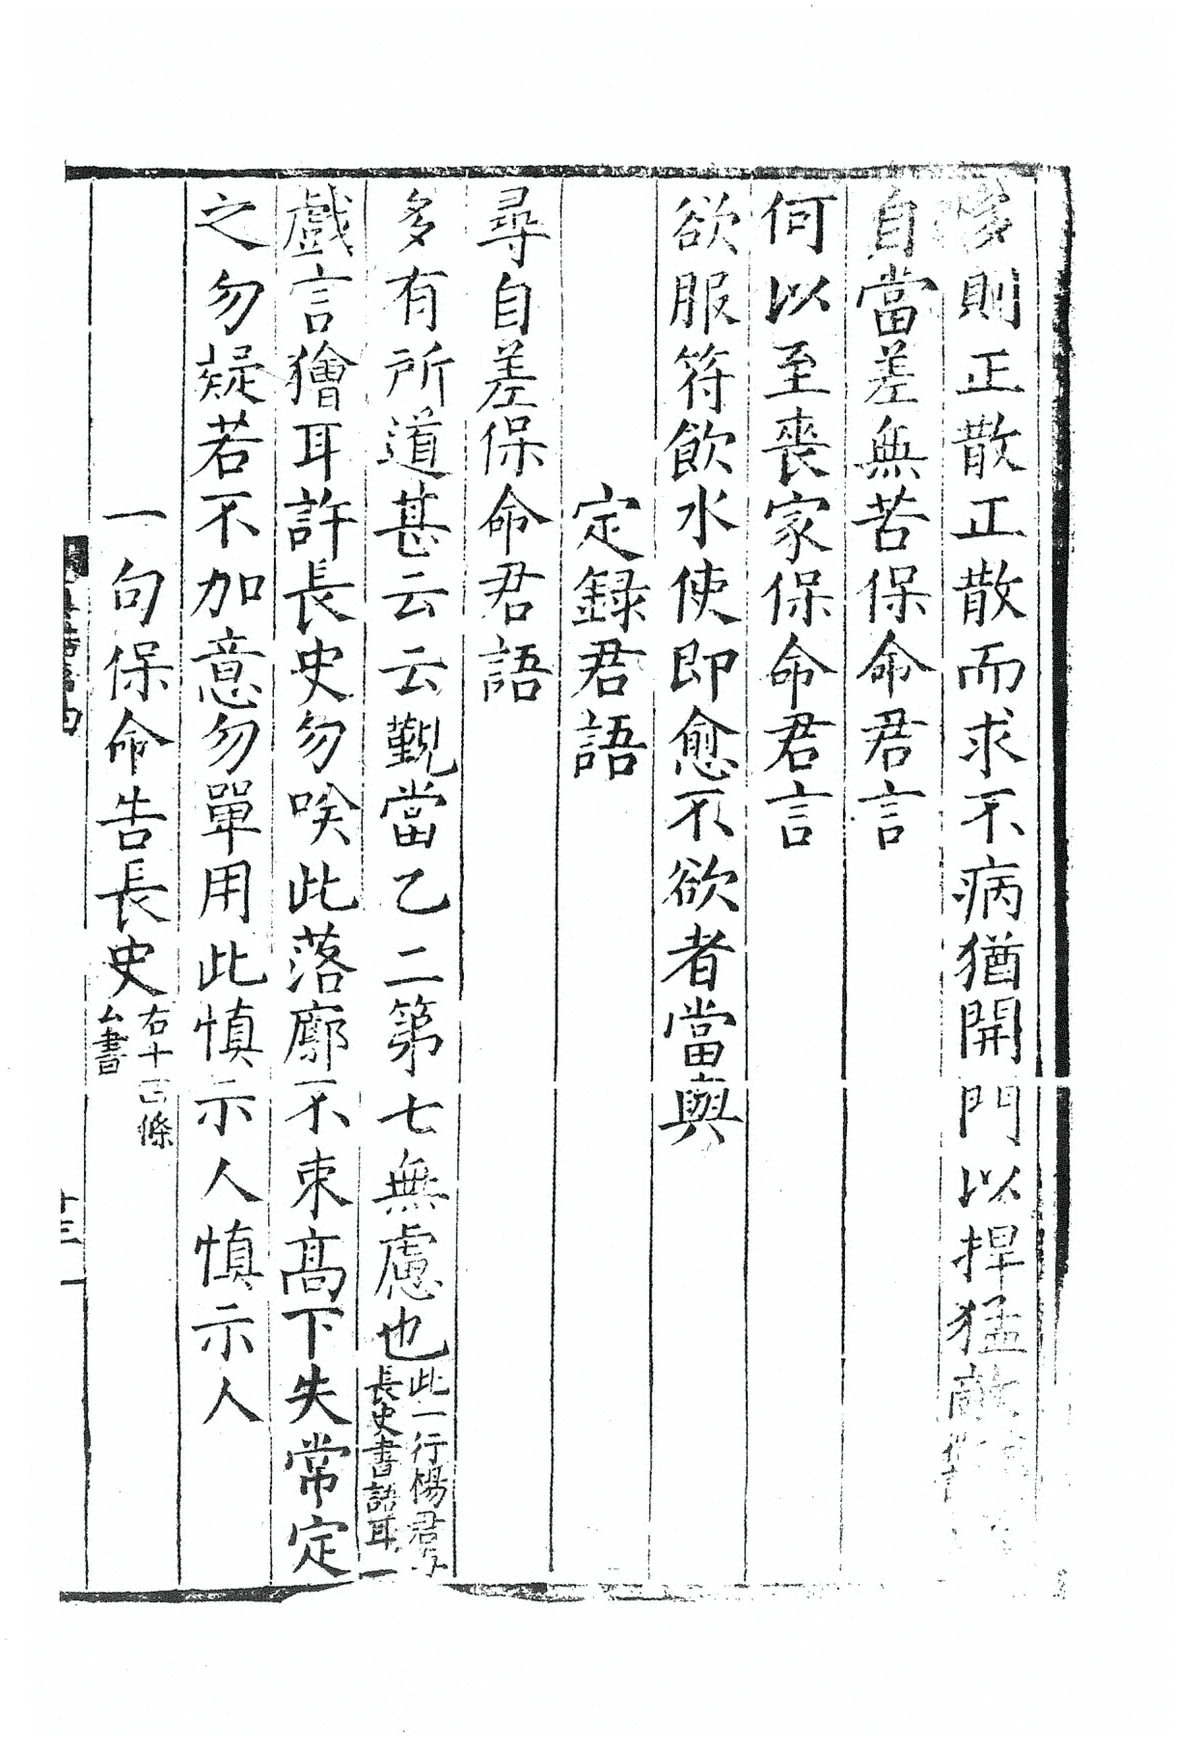 則正散正散而求不病猶開門以捍猛敵
自當差無苦保命君言
何以至喪家保命君言
欲服符飲水使即愈不欲者當與
定錄君語
尋自差保命君語
多有所道甚云云觀當乙二第七無慮也此一行楊君
長史書語耳
戲言獪耳許長史勿唉此落廓不束髙下失常定
之勿疑若不加意勿單用此慎示人慎示人
一句保命告長史右十四條
厶書
十三